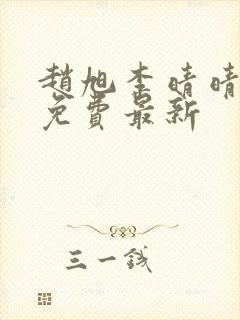 趙旭李晴晴
免費最新
三一錢